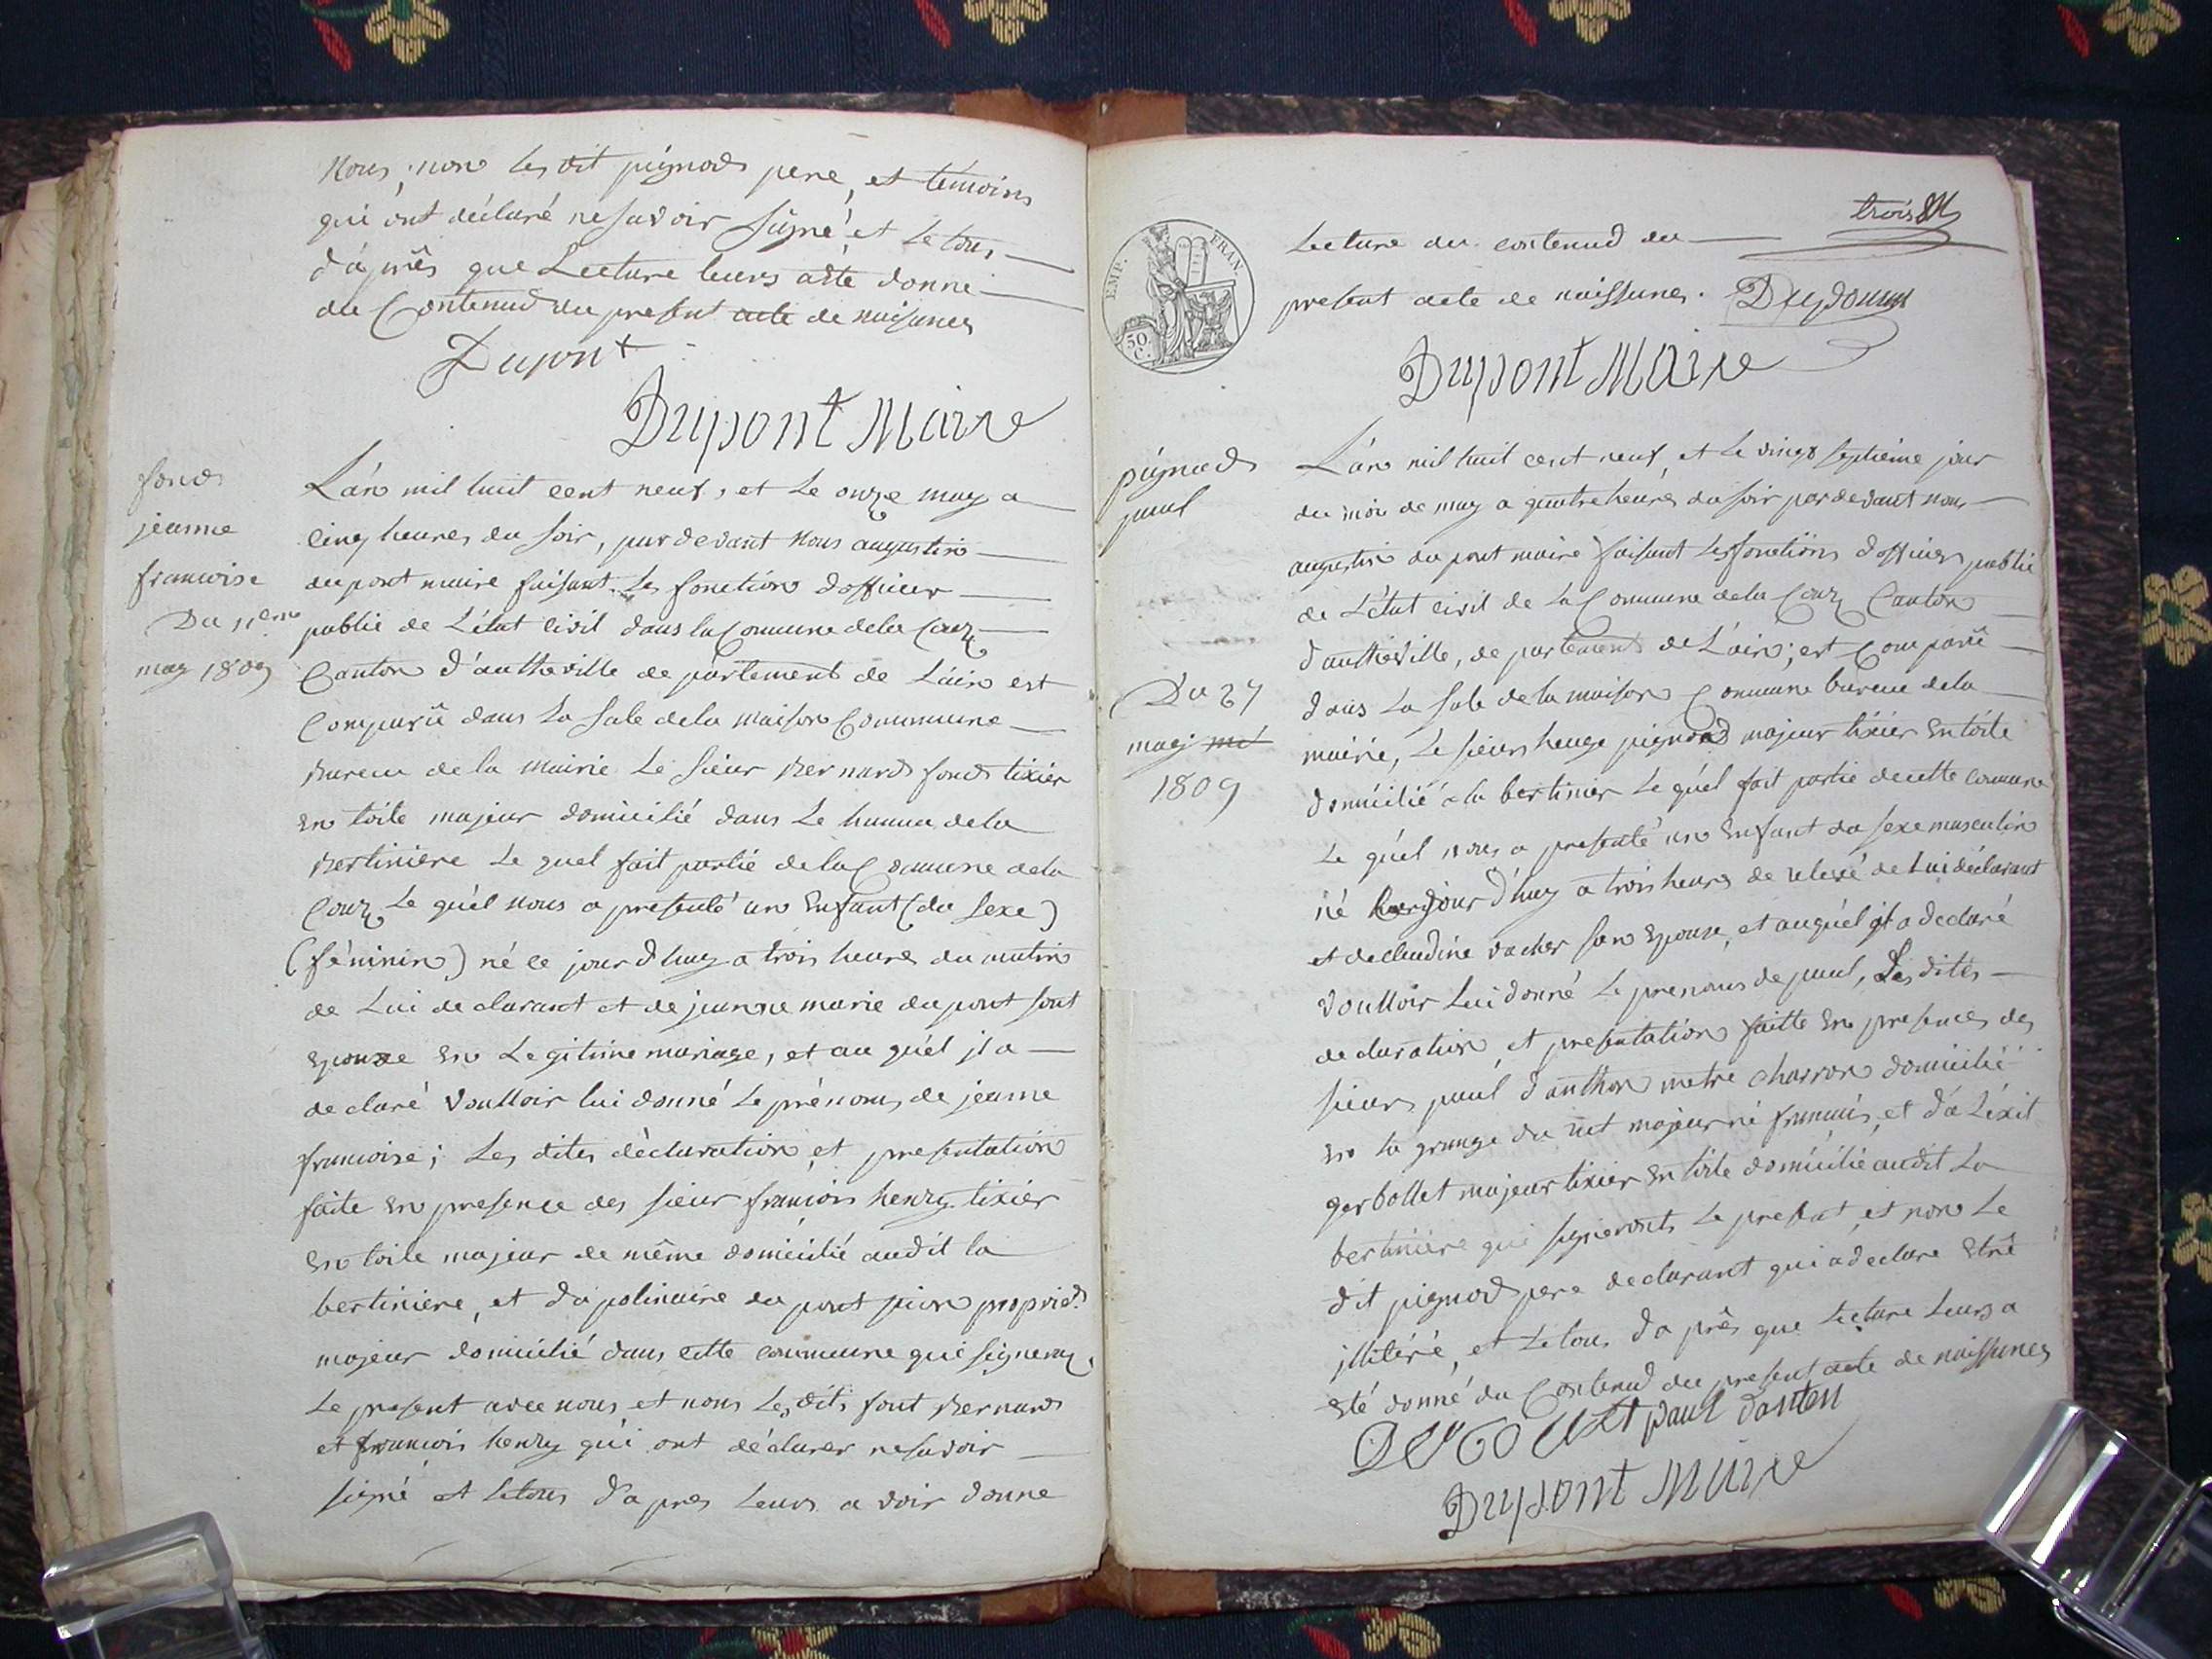 Nous; non les dit pignod pere, et témoins
qui ont déclaré ne savoir signé, et le tous
d'après que Lecture leurs a été donné
du Contenud du present acte de naisances
Dupont
Dupont Maire
fond
jeanne
francoise
Du 11eme
may 1809
L'an mil huit cent neuf, et Le onze may a
cinq heures du soir, pardevant Nous augustin
dupont maire faisant les fonction d'officier
public de L'état civil dans la Commune de la Couz
Canton d'antheville de partement de L'ain est
Comparû dans La sale de la maison Commune
Bureau de la Mairie Le sieur Bernard fond tixier
En toile majeur domicilié dans Le hameau de la
Bertiniere Le quel fait partié de la Commune de la
Couz Le quél nous a presenté un Enfant (du sexe)
(féminin) né ce jour d'huy a trois heures du matin
de Lui declarant et de jeanne marie dupont sont
Epouze En Legitime mariage, et au quél jl a
declaré voulloir lui donné Le prénoms de jeanne
francoise; Les dites déclaration et presentation
faite En presence des sieur francois henry tixier
En toile majeur de même domicilié audit la
bertiniere, et d'apolinaire du pont pion propried.
majeur domicilié dans cette commune qui signeron,
Le present avec nous et nons Les dits font Bernard
et francois henry qui ont déclarer ne savoir
signé et Letous d'apres Leurs avoir donne
trois
EMP. FRAN.
50 C.
Lecture du contenud du
present acte de naissances. Dupont
Dupont Maire
pignod
paul
Du 27
may
1809
L'an mil huit cent neuf, et Le vingt septième jour
du mois de may a quatre heures du soir pardevant nous
augustin du pont maire faisant Les fonctions d'officier public
de L'état civil de La Commune de la Couz Canton
d'antheville, de partement de L'ain; est Comparû
dans La sale de la maison Commune bureau de la
mairie, Le sieurs heuge pignod majeur tixier En toile
domicilié a la bertinier Le quél fait partie de cette commune
Le quél nous a presenté un Enfant du sexe masculin
né jour d'huy a trois heures de relevé de Lui déclarant
et de claudine vacher son Epouse, et auquél jl a declaré
voulloir Lui donné Le prenoms de paul, Les dites
declaration, et presentation faitte En presences des
sieurs paul d'anthon metre charron domicilié
En la grange du majeur né francais, et d'a
gerbollet majeur tixier En toile domicilié audit La
bertiniere qui signeronts Le present, et non Le
dit pignod pere declarant qui a declare Etre
jllitéré, et Letous d'a près que Lecture Leurs a
Eté donné du Contenud du present acte de naissances
paul danten
Dupont Maire